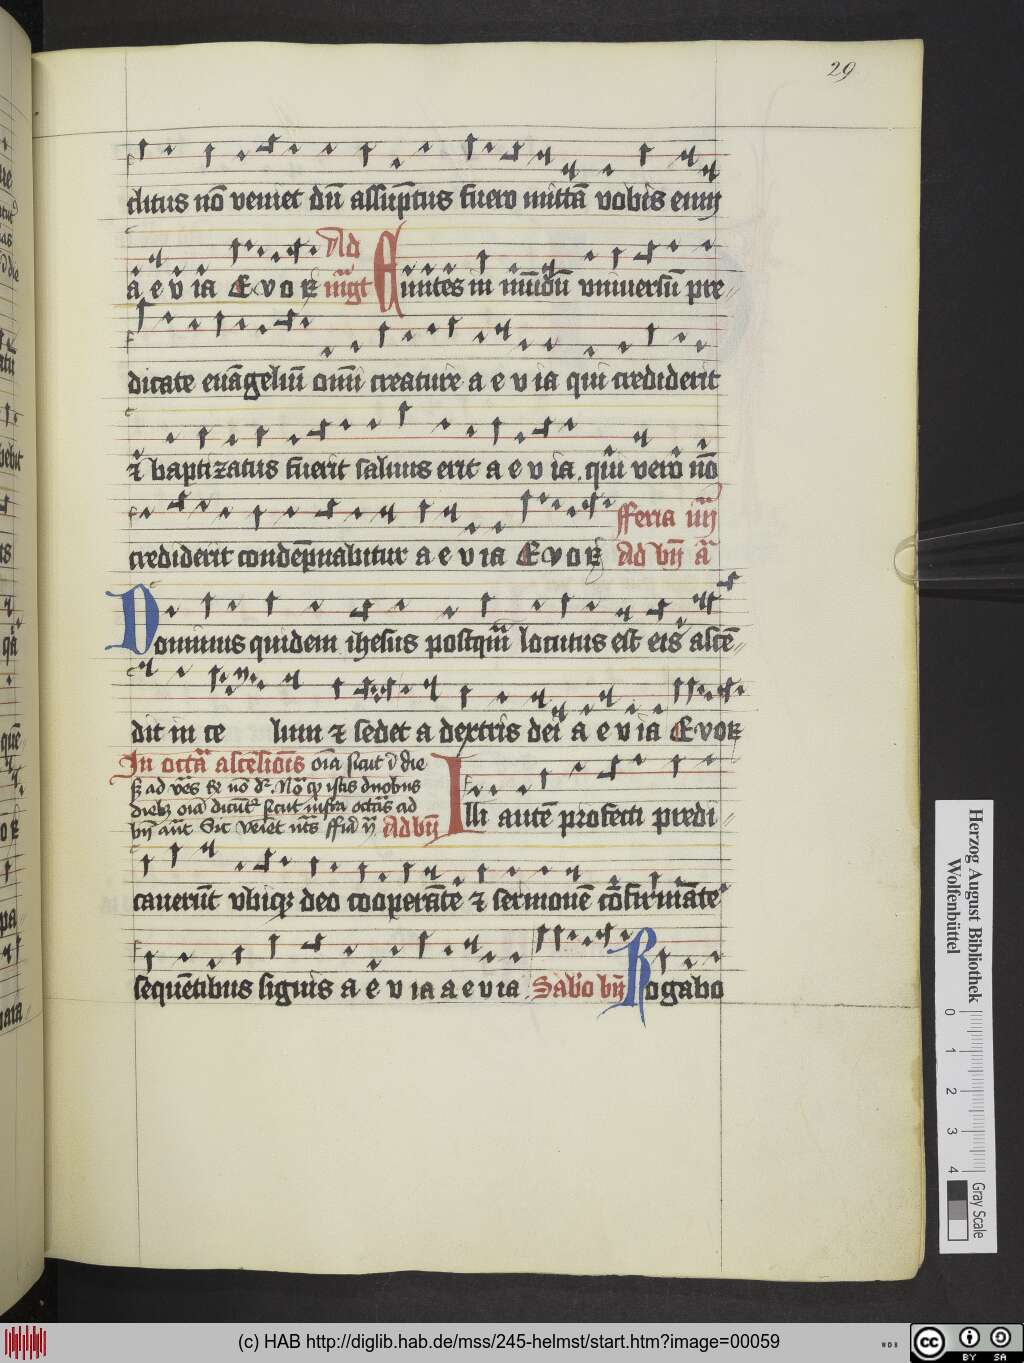 29
clitus nō veniet dū assūptus fuero mittā vobis eum
a e v ia Evoꝝ Ad m̄gt Euntes in mūdū vniuersū pre
dicate euāgeliū omī creature a e v ia qui crediderit
⁊ baptizatus fuerit saluus erit a e v ia. qui vero nō
crediderit condēpnabitur a e v ia Evoꝝ fferia iiij
Ad bn̄ a
Dominus quidem ihesus postqm̄ locutus est eis ascē
dit in ce lum ⁊ sedet a dextris dei a e v ia Evoꝝ
In octā ascēsiōis oīa sicut ī die
diebꝫ oīa dicūt sicut infra octās ad
Ad bn̄ Illi autē profecti predi
cauerūt vbiqꝫ deo cooperāte ⁊ sermonē cōfirmāte
sequētibus signis a e v ia a e v ia. Sabō bn̄ Rogabo
Herzog August Bibliothek
Wolfenbüttel
0 1 2 3 4
Gray Scale
(c) HAB http://diglib.hab.de/mss/245-helmst/start.htm?image=00059
WDB
CC BY SA